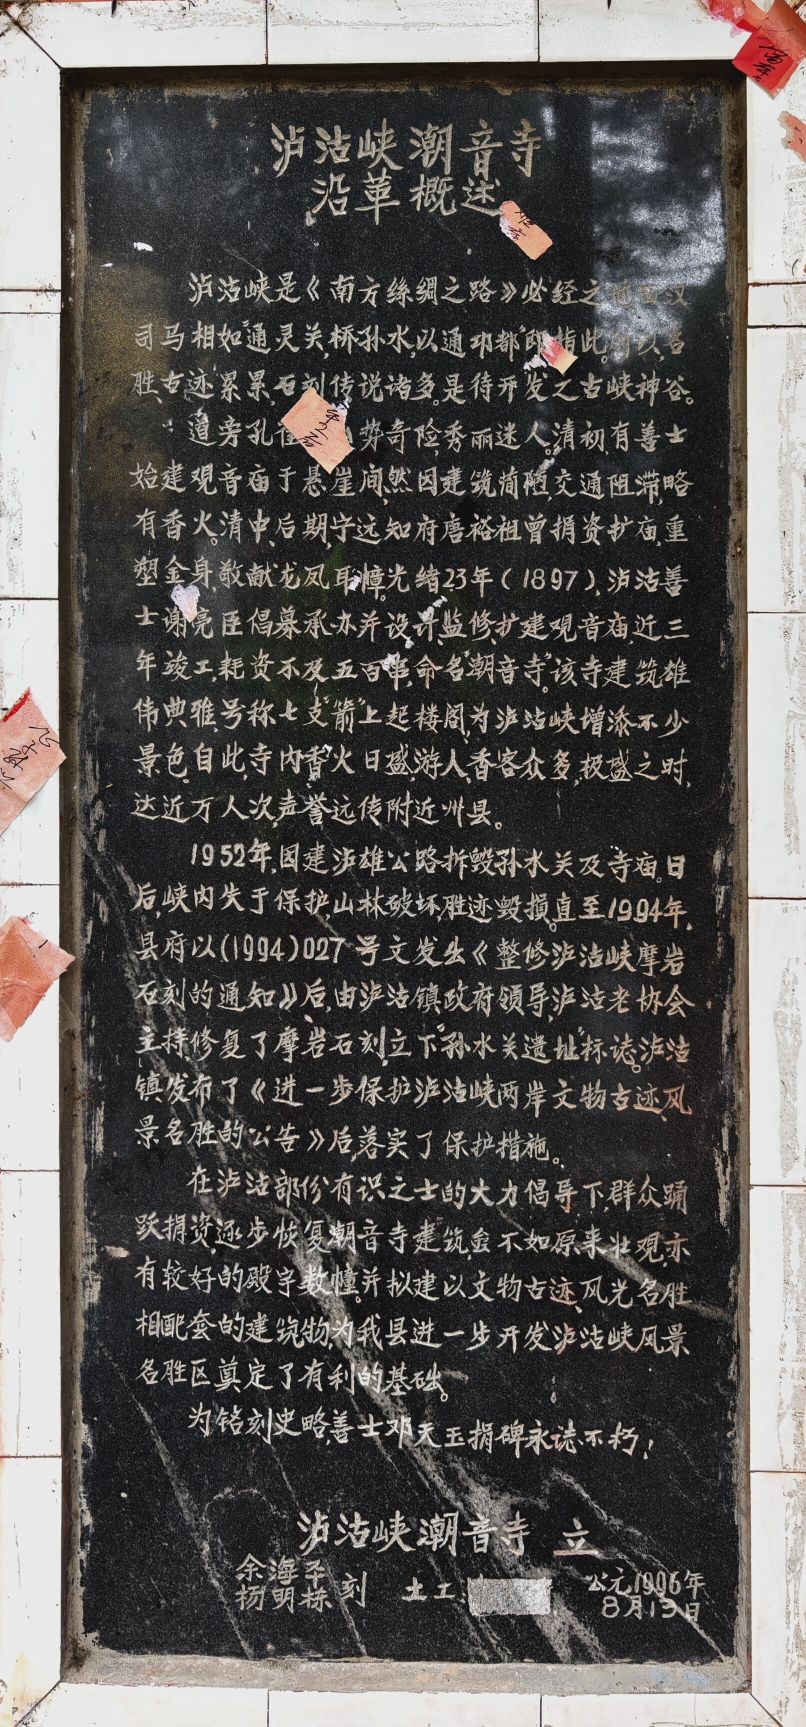 泸沽峡潮音寺
沿革概述
泸沽峡是《南方丝绸之路》必经之地西汉
司马相如"通灵关,桥孙水,以通邛都"即指此
胜、古迹累累,石刻传说诸多。是待开发之古峡神谷。
道旁孔 势奇险,秀丽迷人。清初,有善士
始建观音庙于悬崖间,然因建筑简陋,交通阻滞,略
有香火。清中、后期宁远知府唐裕祖曾捐资扩庙,重
塑金身,敬献龙凤耳幛。光绪23年(1897),泸沽善
士谢亮臣倡募承办并设计、监修、扩建观音庙,近三
年竣工,耗资不及五百串,命名"潮音寺"。该寺建筑雄
伟典雅,号称七支"箭"上起楼阁,为泸沽峡增添不少
景色。自此,寺内香火日盛,游人、香客众多,极盛之时,
达近万人次,声誉远传附近州县。
1952年,因建泸雄公路拆毁孙水关及寺庙。日
后,峡内失于保护,山林破坏,胜迹毁损。直至1994年,
县府以(1994)027号文发出《整修泸沽峡摩岩
石刻的通知》后,由泸沽镇政府领导,泸沽老协会
主持修复了摩岩石刻,立下"孙水关遗址"标志。泸沽
镇发布了《进一步保护泸沽峡两岸文物古迹、风
景名胜的公告》后,落实了保护措施。
在泸沽部份有识之士的大力倡导下,群众踊
跃捐资,逐步恢复潮音寺建筑,虽不如原来壮观,亦
有较好的殿宇数幢。并拟建以文物古迹、风光名胜
相配套的建筑物,为我县进一步开发泸沽峡风景
名胜区奠定了有利的基础。
为铭刻史略,善士邓天玉捐碑永志不朽!
泸沽峡潮音寺 立
余海子
杨明栋 刻 土工 公元1996年
8月13日